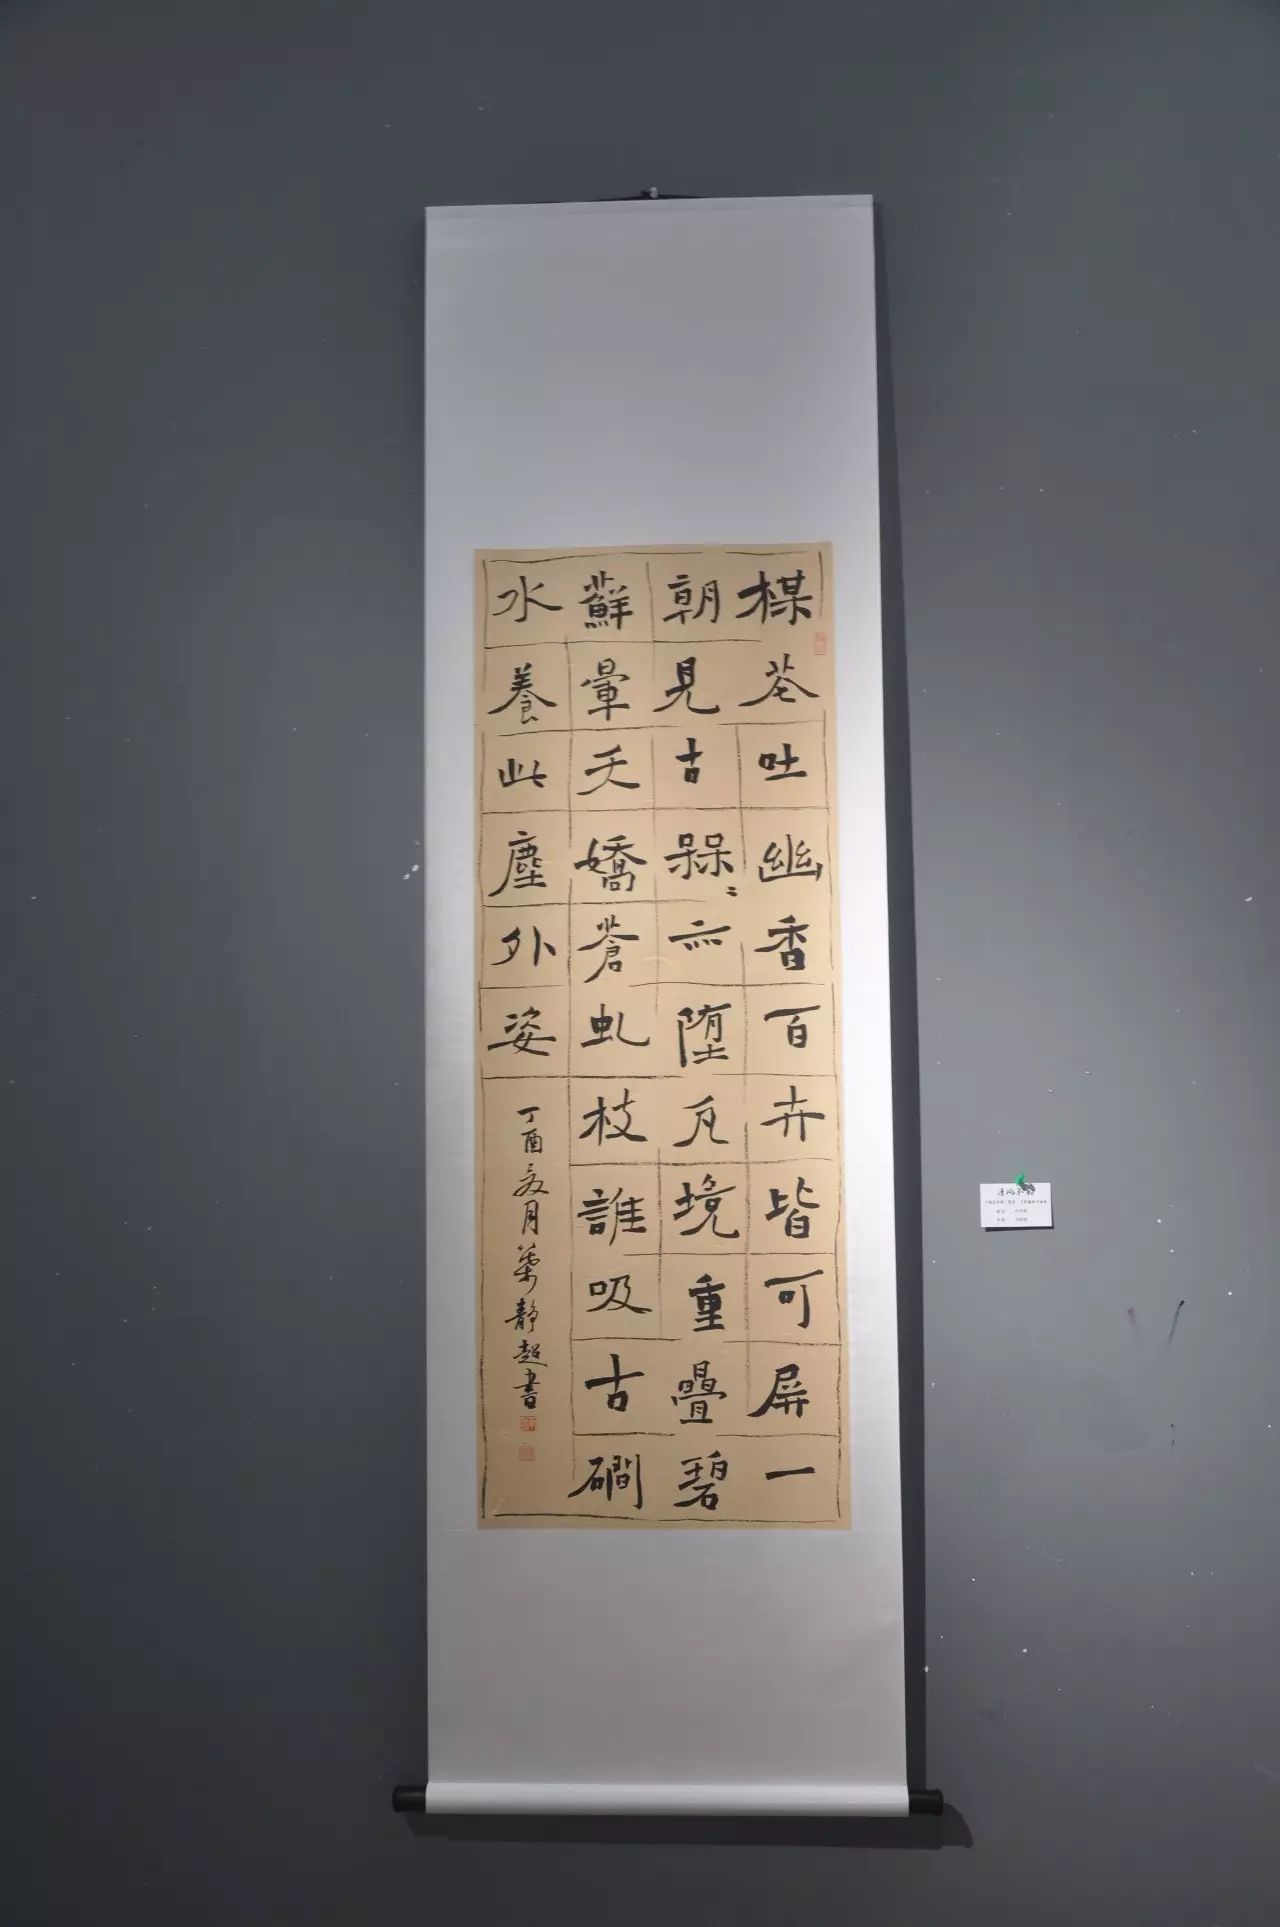 楳苍吐幽香百卉皆可屏一
朝見古槑〻亦堕凡境重疊碧
蘚暈夭嬌蒼虬枝誰吸古磵
水養此塵外姿
丁酉年月葉靜超書